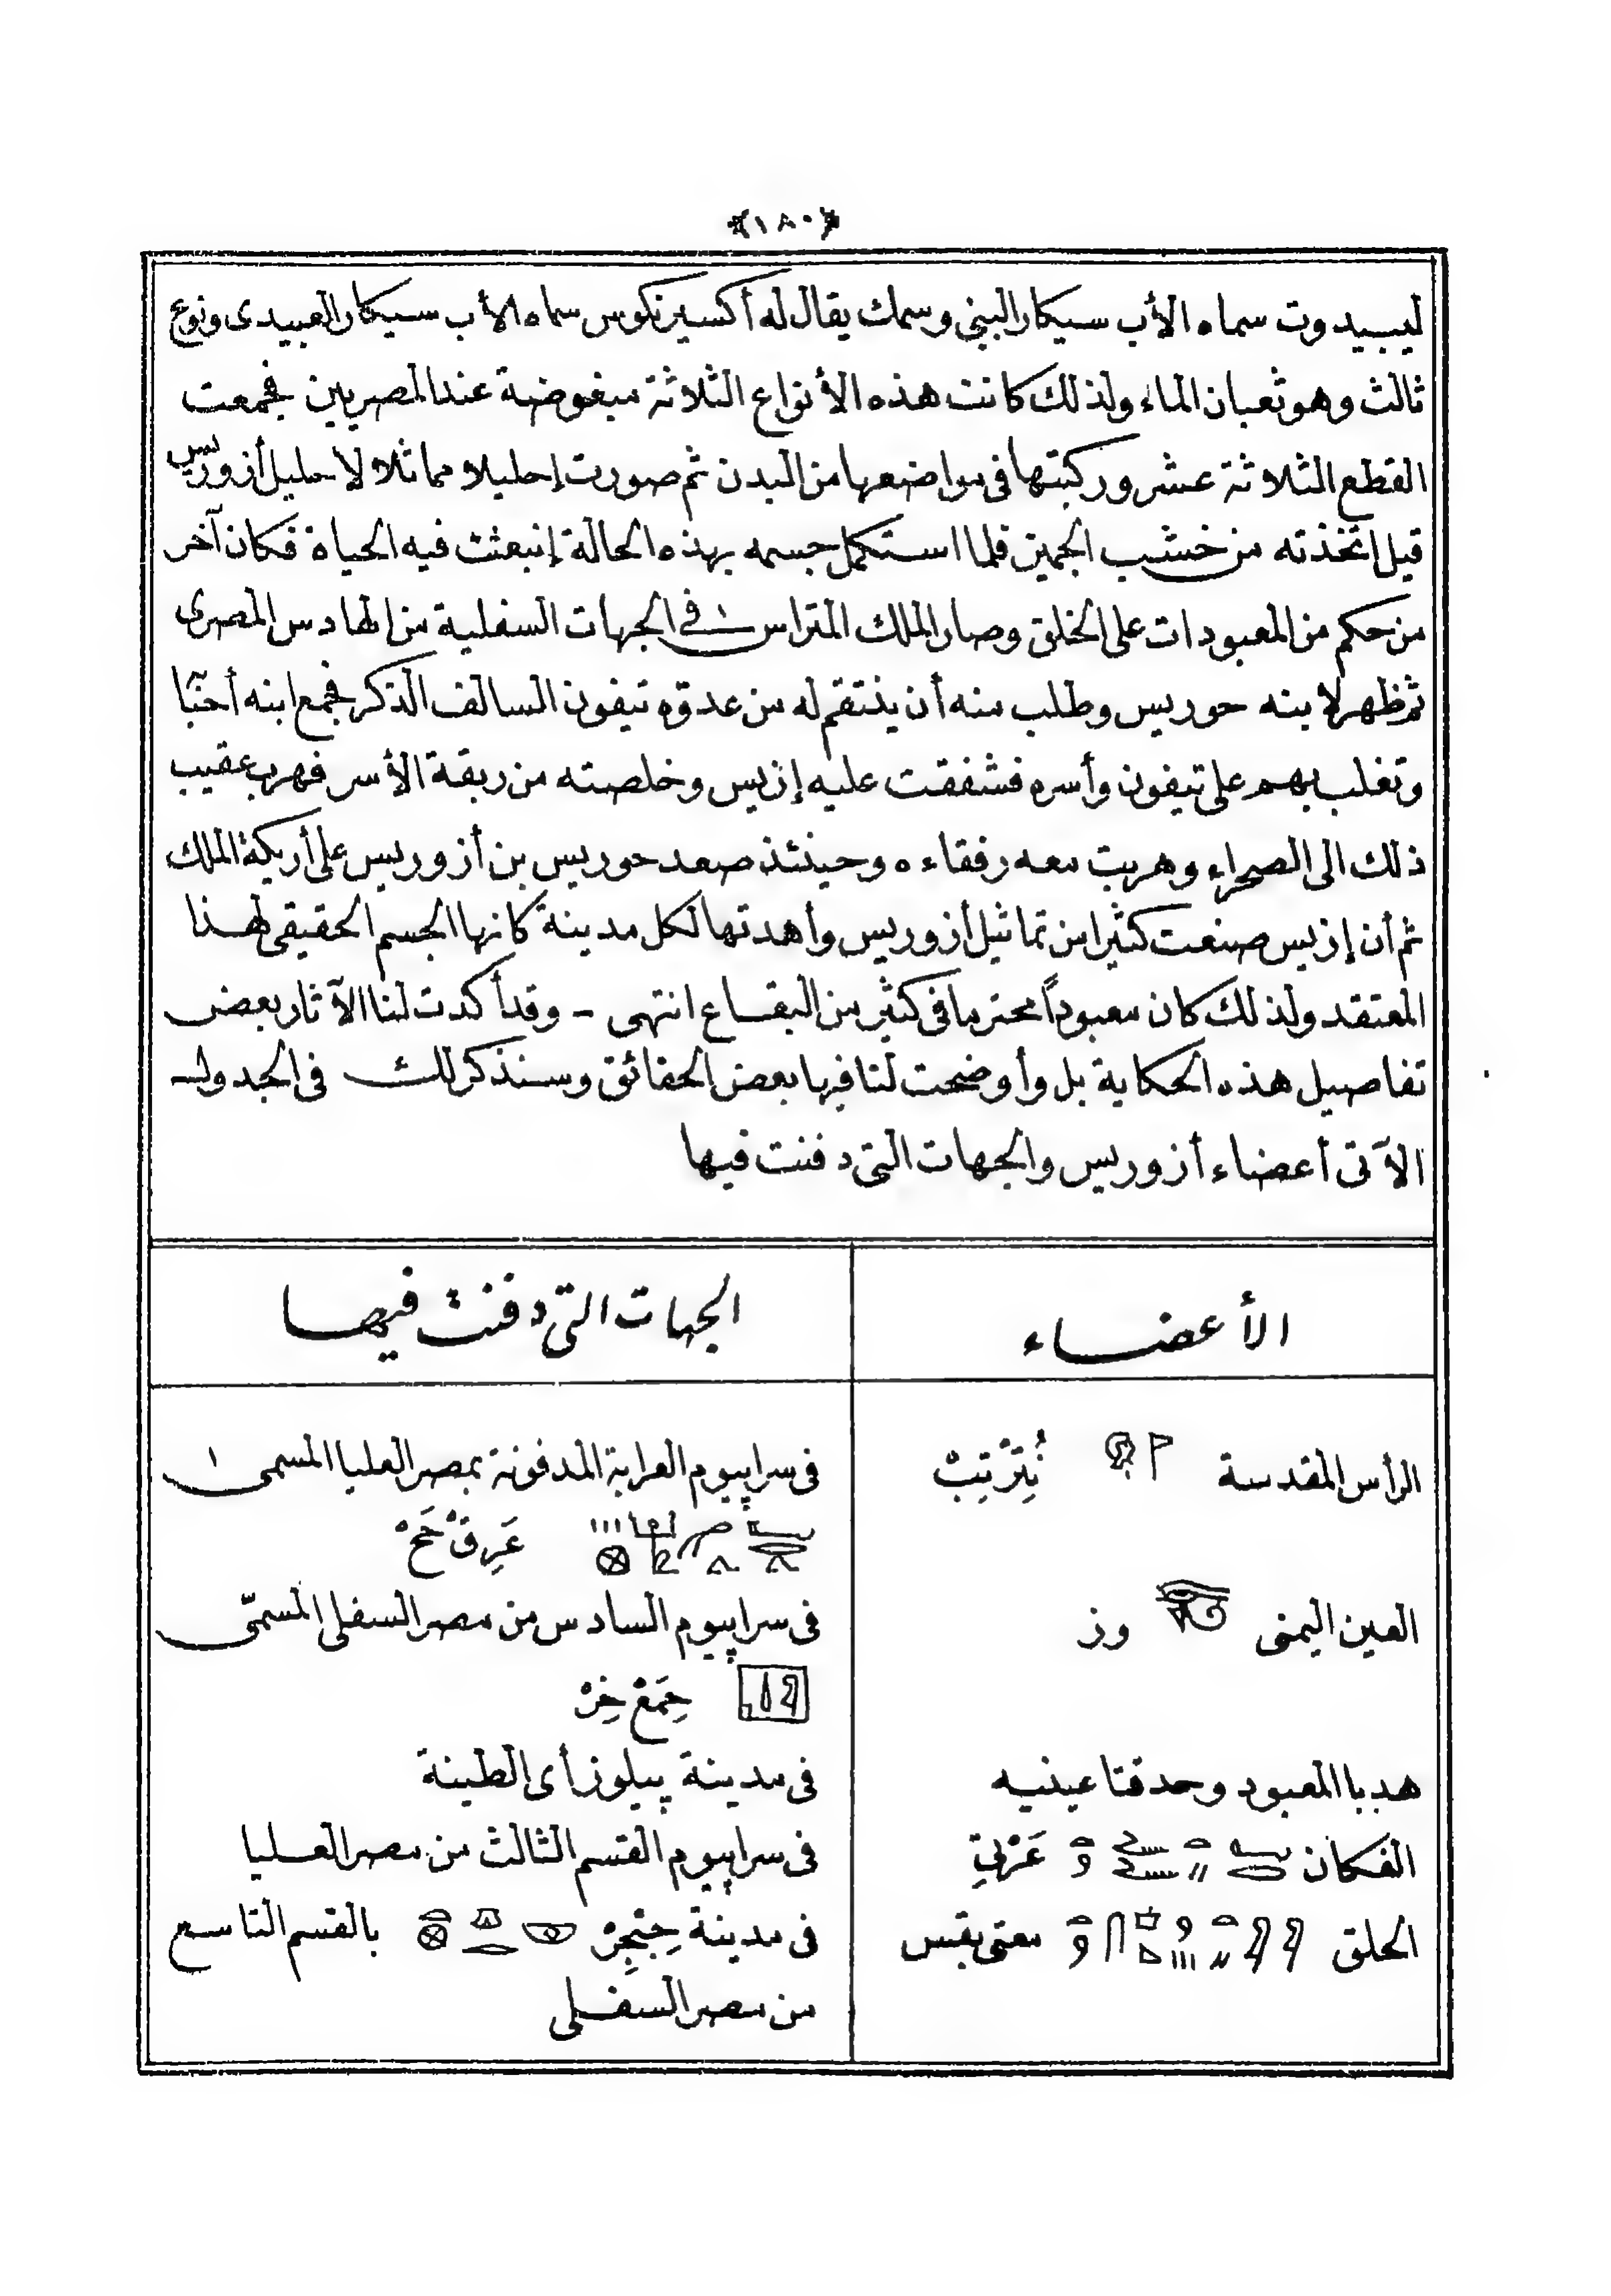 ﴿١٨٠﴾
ليبيدوت سماه الأب سيكار البني وسمك يقال له أكسيرنكوس سماه الأب سيكار العبيدى ونوع
ثالث وهو ثعبان الماء ولذلك كانت هذه الأنواع الثلاثة مبغوضة عند المصريين فجمعت
القطع الثلاثة عشر وركبتها فى مواضعها من البدن ثم صورت إحليلا مماثلا لإحليل أزوريس
قيل اتخذته من خشب الجميز فلما استكمل جسمه بهذه الحالة إنبعثت فيه الحياة فكان آخر
من حكم من المعبودات على الخلق وصار الملك المتراس فى الجهات السفلية من الهادس المصرى
ثم ظهر لابنه حوريس وطلب منه أن ينتقم له من عدوّه تيفون السالف الذكر فجمع ابنه أحبّا
وتغلب بهم على تيفون وأسره فشفقت عليه إزيس وخلصته من ربقة الأسر فهرب عقيب
ذلك الى الصحراء وهربت معه رفقاءه وحينئذ صعد حوريس بن أزوريس على أريكة الملك
ثم أن إزيس صنعت كثيرا من تماثيل أزوريس وأهدتها لكل مدينة كانها الجسم الحقيقى لهذا
المعتقد ولذلك كان معبوداً محترما فى كثير من البقاع انتهى – وقد أكدت لنا الآثار بعض
تفاصيل هذه الحكاية بل وأوضحت لنا فيها بعض الحقائق وسنذكر لك فى الجدول
الآتى أعضاء أزوريس والجهات التى دفنت فيها
الأعضاء
الجهات التى دفنت فيها
الرأس المقدسة نُتِرْتِبْ
فى سراپيوم العرابة المدفونة بمصر العليا المسمى
عَرِقْ حَحْ
العين اليمنى وز
فى سراپيوم السادس من مصر السفلى المسمّى
حِمَعْ خِرْ
هدبا المعبود وحدقتا عينيه
فى مدينة پيلوز أى الطينة
الفكان عَرْتِ
فى سراپيوم القسم الثالث من مصر العليا
الحلق
فى مدينة بالقسم التاسع
من مصر السفلى